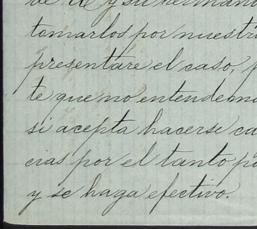 de ti y su hermano
tomarlos por nuestr
presentare el caso, p
te que no entendemo
si acepta hacerse ca
cias por el tanto po
y se haga efectivo.